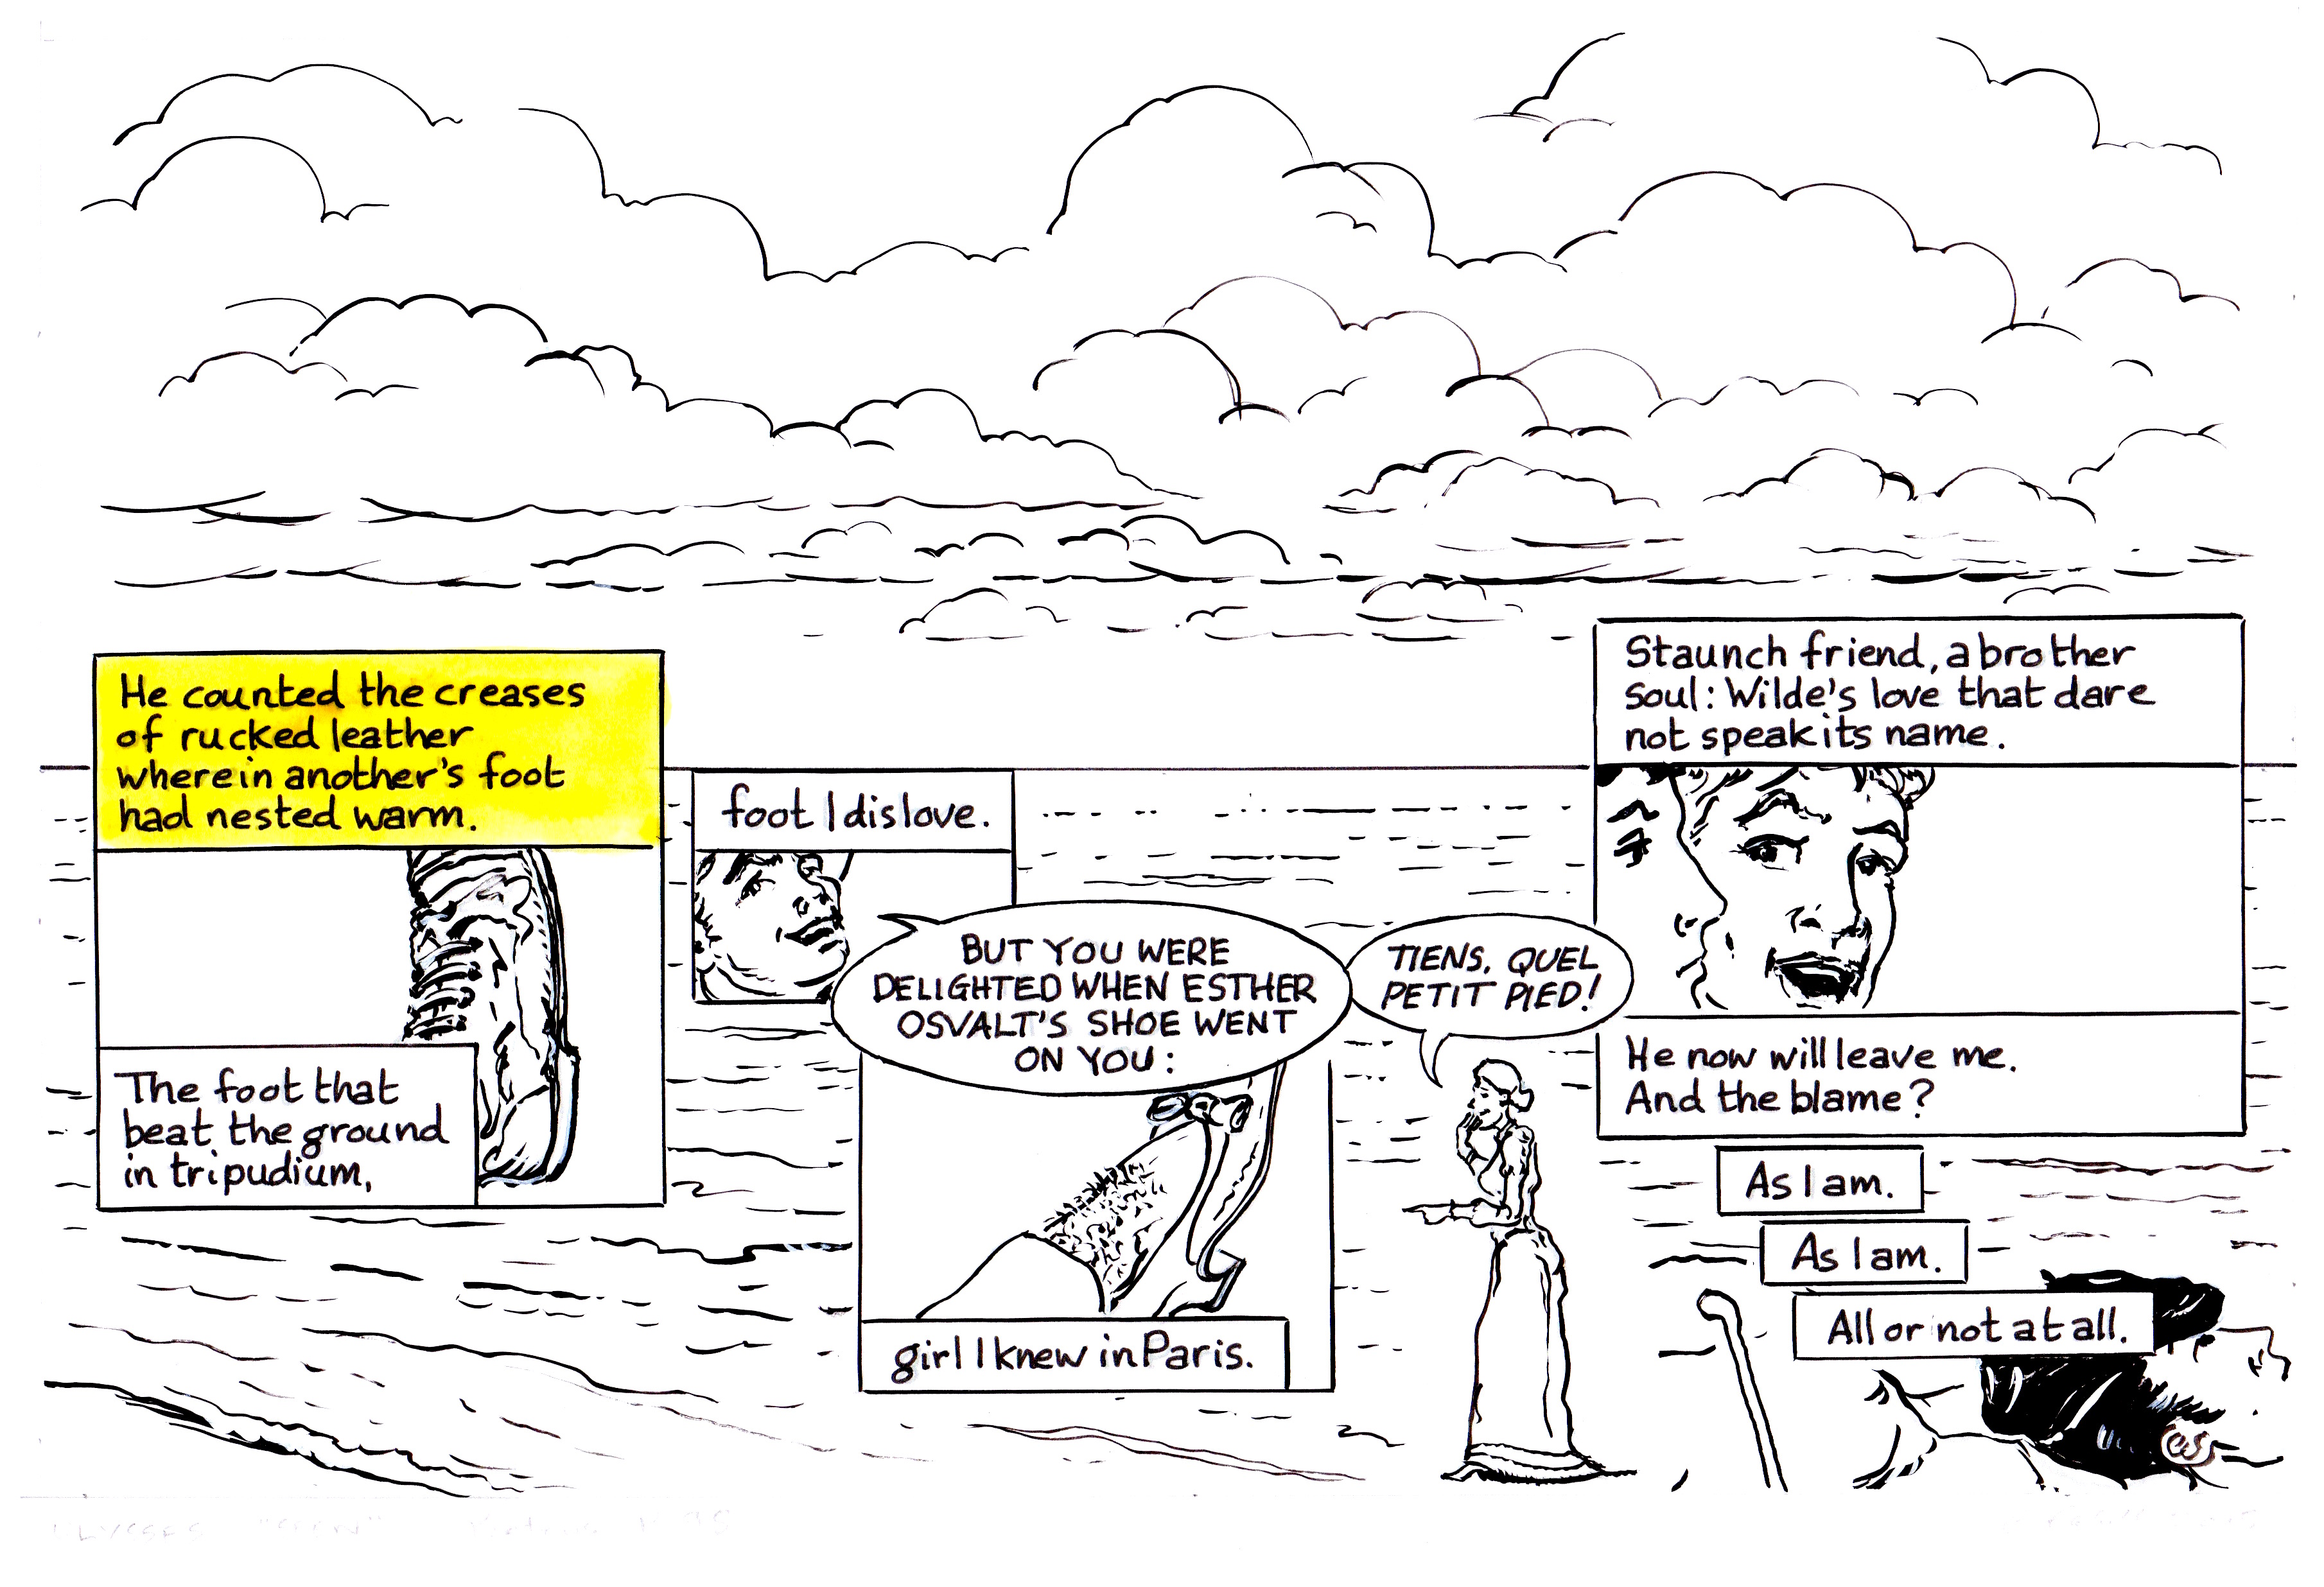 He counted the creases
of rucked leather
wherein another's foot
had nested warm.
The foot that
beat the ground
in tripudium,
foot I dislove.
BUT YOU WERE
DELIGHTED WHEN ESTHER
OSVALT'S SHOE WENT
ON YOU:
girl I knew in Paris.
TIENS, QUEL
PETIT PIED!
Staunch friend, a brother
soul: Wilde's love that dare
not speak its name.
He now will leave me.
And the blame?
As I am.
As I am.
All or not at all.
ULYSSES